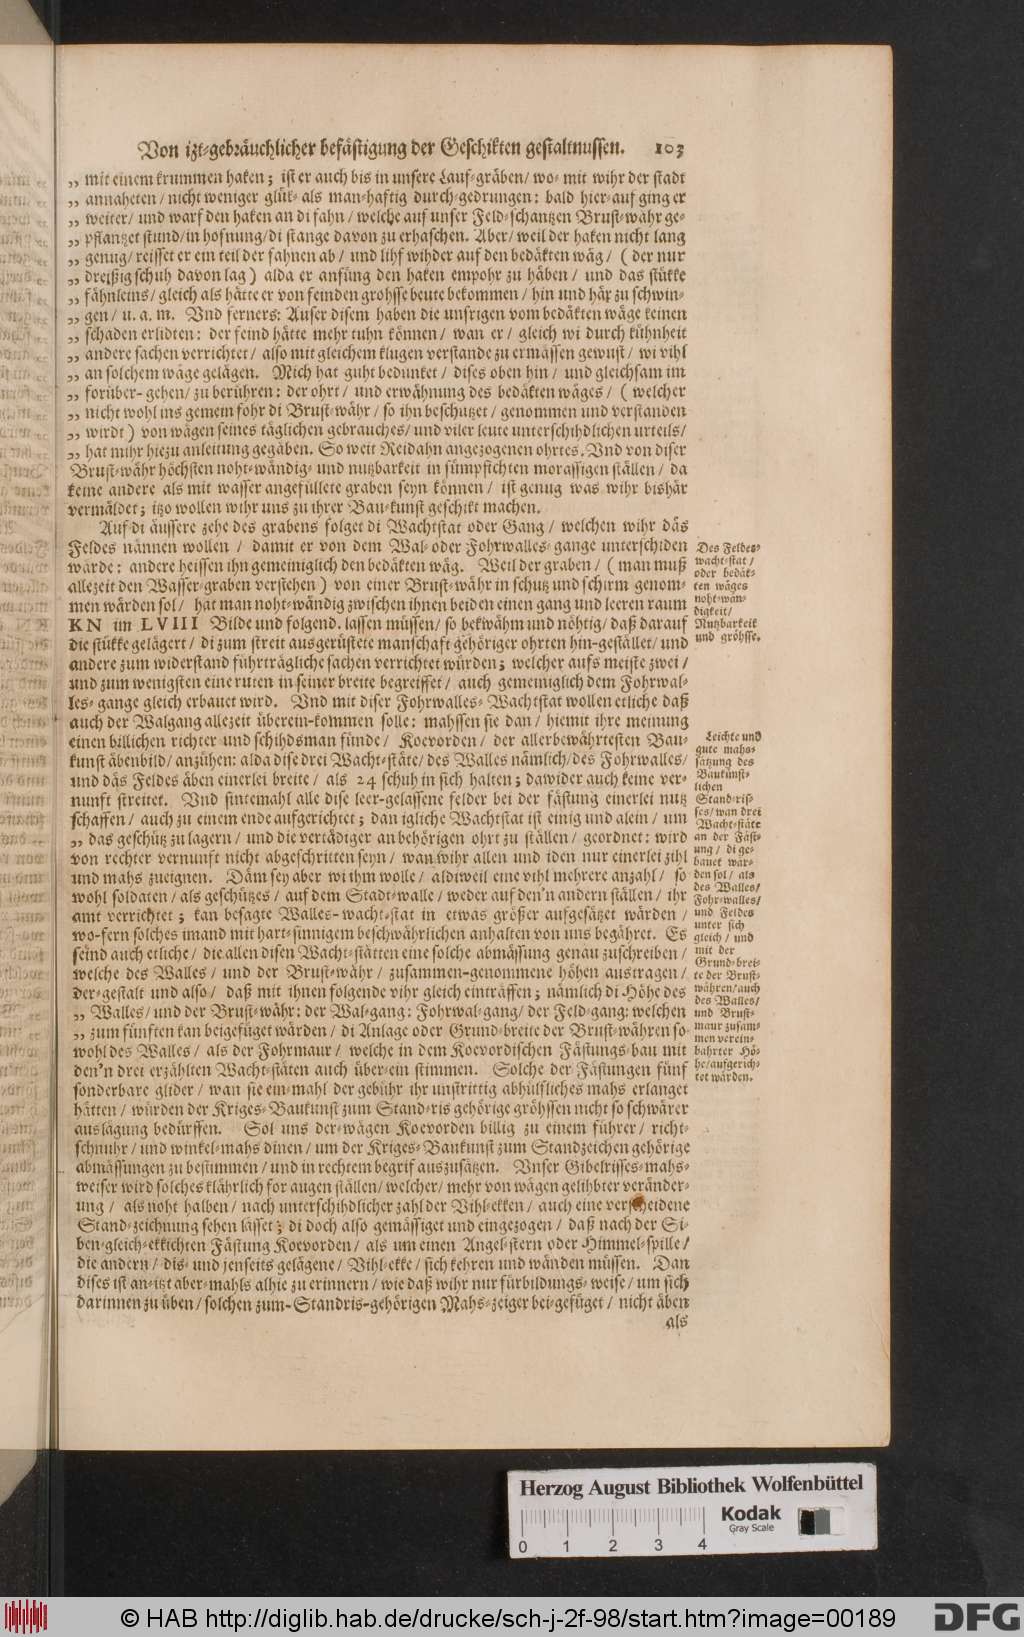 Von izt-gebräuchlicher befästigung der Geschikten gestaltnussen. 103
„ mit einem krummen haken; ist er auch bis in unsere Lauf-gräben/ wo-mit wihr der stadt
„ annaheten/ nicht weniger glük- als man-haftig durch-gedrungen: bald hier-auf ging er
„ weiter/ und warf den haken an di fahn/ welche auf unser Feld-schantzen Brust-währ ge-
„ pflantzet stund/ in hofnung/ di stange davon zu erhaschen. Aber/ weil der haken nicht lang
„ genug/ reisset er ein teil der fahnen ab/ und lihf wihder auf den bedäkten wäg/ (der nur
„ dreißig schuh davon lag) alda er anfüng den haken empohr zu häben/ und das stükke
„ fähnleins/ gleich als hätte er von feinden grohsse beute bekommen/ hin und här zu schwin-
„ gen/ u. a. m. Vnd ferners: Auser disem haben die unsrigen vom bedäkten wäge keinen
„ schaden erlidten: der feind hätte mehr tuhn können/ wan er/ gleich wi durch kühnheit
„ andere sachen verrichtet/ also mit gleichem klugen verstande zu ermässen gewust/ wi vihl
„ an solchem wäge gelägen. Mich hat guht bedunket/ dises oben hin/ und gleichsam im
„ forüber-gehen/ zu berühren: der ohrt/ und erwähnung des bedäkten wäges/ (welcher
„ nicht wohl ins gemein fohr di Brust-währ/ so ihn beschutzet/ genommen und verstanden
„ wirdt) von wägen seines täglichen gebrauches/ und viler leute unterschihdlichen urteils/
„ hat mihr hiezu anleitung gegäben. So weit Reidahn angezogenen ohrtes. Vnd von diser
Brust-währ höchsten noht-wändig- und nutzbarkeit in sümpfichten morassigen ställen/ da
keine andere als mit wasser angefüllete graben seyn können/ ist genug was wihr bishär
vermäldet; itzo wollen wihr uns zu ihrer Bau-kunst geschikt machen.
Auf di äussere zehe des grabens folget di Wachtstat oder Gang/ welchen wihr däs
Feldes nännen wollen/ damit er von dem Wal- oder Fohrwalles-gange unterschiden
wärde: andere heissen ihn gemeiniglich den bedäkten wäg. Weil der graben/ (man muß
allezeit den Wasser-graben verstehen) von einer Brust-währ in schutz und schirm genom-
men wärden sol/ hat man noht-wändig zwischen ihnen beiden einen gang und leeren raum
KN im LVIII Bilde und folgend. lassen müssen/ so bekwähm und nöhtig/ daß darauf
die stükke gelägert/ di zum streit ausgerüstete manschaft gehöriger ohrten hin-gestället/ und
andere zum widerstand führträgliche sachen verrichtet würden; welcher aufs meiste zwei/
und zum wenigsten eine ruten in seiner breite begreiffet/ auch gemeiniglich dem Fohrwal-
les-gange gleich erbauet wird. Vnd mit diser Fohrwalles-Wachtstat wollen etliche daß
auch der Walgang allezeit überein-kommen solle: mahssen sie dan/ hiemit ihre meinung
einen billichen richter und schihdsman fünde/ Koevorden/ der allerbewährtesten Bau-
kunst äbenbild/ anzühen: alda dise drei Wacht-stäte/ des Walles nämlich/ des Fohrwalles/
und däs Feldes äben einerlei breite/ als 24 schuh in sich halten; dawider auch keine ver-
nunft streitet. Vnd sintemahl alle dise leer-gelassene felder bei der fästung einerlei nutz
schaffen/ auch zu einem ende aufgerichtet; dan igliche Wachtstat ist einig und alein/ um
„ das geschütz zu lagern/ und die vertädiger an behörigen ohrt zu ställen/ geordnet: wird
von rechter vernunft nicht abgeschritten seyn/ wan wihr allen und iden nur einerlei zihl
und mahs zueignen. Däm sey aber wi ihm wolle/ aldiweil eine vihl mehrere anzahl/ so
wohl soldaten/ als geschützes/ auf dem Stadt-walle/ weder auf den'n andern ställen/ ihr
amt verrichtet; kan besagte Walles-wacht-stat in etwas größer aufgesätzet wärden/
wo-fern solches imand mit hart-sinnigem beschwährlichen anhalten von uns begähret. Es
seind auch etliche/ die allen disen Wacht-stätten eine solche abmässung genau zuschreiben/
welche des Walles/ und der Brust-währ/ zusammen-genommene höhen austragen/
der-gestalt und also/ daß mit ihnen folgende vihr gleich einträffen; nämlich di Höhe des
„ Walles/ und der Brust-währ: der Wal-gang: Fohrwal-gang/ der Feld-gang: welchen
„ zum fünften kan beigefüget wärden/ di Anlage oder Grund-breite der Brust-währen so-
wohl des Walles/ als der Fohrmaur/ welche in dem Koevordischen Fästungs-bau mit
den'n drei erzählten Wacht-stäten auch über-ein stimmen. Solche der Fästungen fünf
sonderbare glider/ wan sie ein-mahl der gebühr ihr unstrittig abhülfliches mahs erlanget
hätten/ würden der Kriges-Baukunst zum Stand-ris gehörige gröhssen nicht so schwärer
auslägung bedürffen. Sol uns der-wägen Koevorden billig zu einem führer/ richt-
schnuhr/ und winkel-mahs dinen/ um der Kriges-Baukunst zum Standzeichen gehörige
abmässungen zu bestimmen/ und in rechtem begrif auszusätzen. Vnser Gibelrisses-mahs-
weiser wird solches klährlich for augen ställen/ welcher/ mehr von wägen gelihbter veränder-
ung/ als noht halben/ nach unterschihdlicher zahl der Vihl-ekken/ auch eine verscheidene
Stand-zeichnung sehen lässet; di doch also gemässiget und eingezogen/ daß nach der Si-
ben-gleich-ekkichten Fästung Koevorden/ als um einen Angel-stern oder Himmel-spille/
die andern/ dis- und jenseits gelägene/ Vihl-ekke/ sich kehren und wänden müssen. Dan
dises ist an-itzt aber-mahls alhie zu erinnern/ wie daß wihr nur fürbildungs-weise/ um sich
darinnen zu üben/ solchen zum-Standris-gehörigen Mahs-zeiger bei-gefüget/ nicht äben
als
Des Feldes-
wacht-stat/
oder bedäk-
ten wäges
noht-wän-
digkeit/
Nutzbarkeit
und gröhsse.
Leichte und
gute mahs-
sätzung des
Baukünst-
lichen
Stand-ris-
ses/ wan drei
Wacht-stäte
an der Fäst-
ung/ di ge-
bauet wär-
den sol/ als
des Walles/
Fohr-walles/
und Feldes
unter sich
gleich/ und
mit der
Grund-brei-
te der Brust-
währen/ auch
des Walles/
und Brust-
maur zusam-
men verein-
bahrter Hö-
he/ aufgerich-
tet wärden.
Herzog August Bibliothek Wolfenbüttel
Kodak
Gray Scale
0 1 2 3 4
© HAB http://diglib.hab.de/drucke/sch-j-2f-98/start.htm?image=00189
DFG